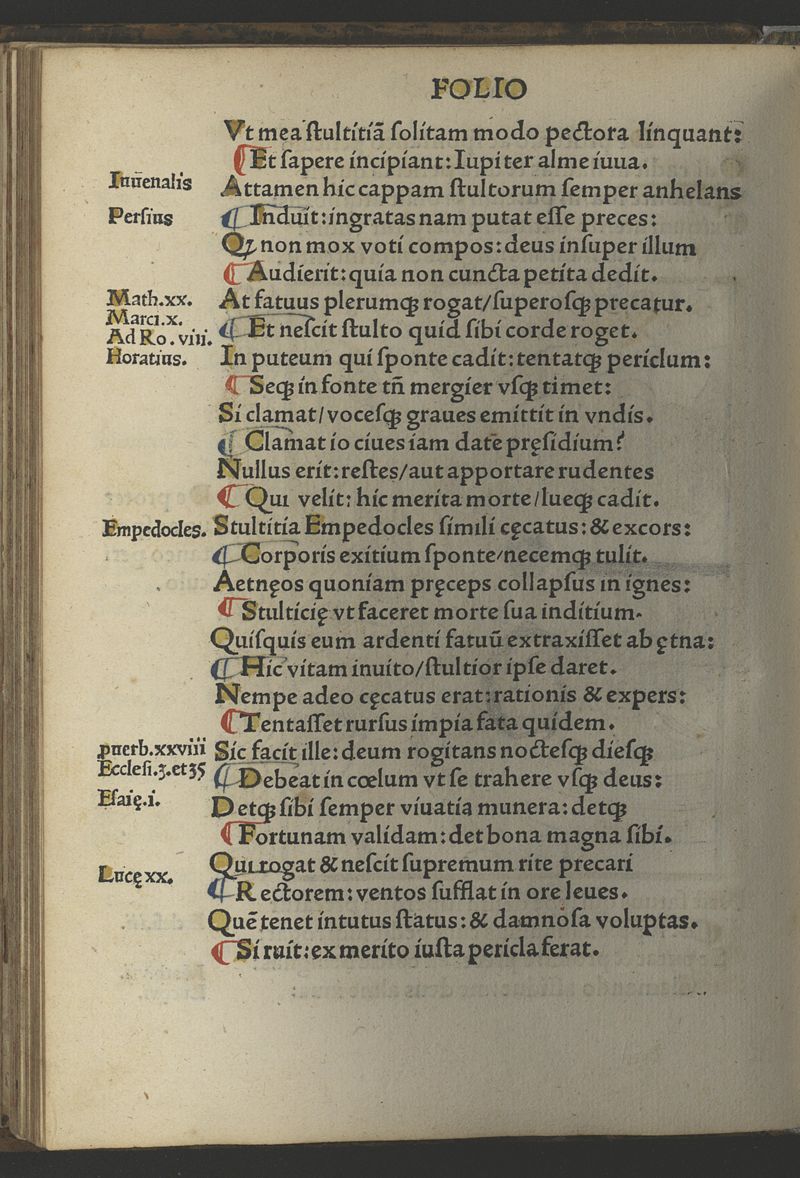 FOLIO
Vt mea ſtultitiā ſolitam modo pectora linquant:
¶ Et ſapere incipiant: Iupiter alme iuua.
Iuuēnalis
Attamen hic cappam ſtultorum ſemper anhelans
Perſius
¶ Induit: ingratas nam putat eſſe preces:
Qꝫ non mox voti compos: deus inſuper illum
¶ Audierit: quia non cuncta petita dedit.
Math.xx.
At fatuus plerumqꝫ rogat/ſuperoſqꝫ precatur.
Marci.x.
Ad Ro.viii.
¶ Et neſcit ſtulto quid ſibi corde roget.
Horatius.
In puteum qui ſponte cadit: tentatqꝫ periclum:
¶ Seqꝫ in fonte tñ mergier vſqꝫ timet:
Si clamat/voceſqꝫ graues emittit in vndis.
¶ Clamat io ciues iam date pręſidium?
Nullus erit: reſtes/aut apportare rudentes
¶ Qui velit: hic merita morte/lueqꝫ cadit.
Empedocles.
Stultitia Empedocles ſimili cęcatus: & excors:
¶ Corporis exitium ſponte/necemqꝫ tulit.
Aetnęos quoniam pręceps collapſus in ignes:
¶ Stulticię vt faceret morte ſua inditium.
Quiſquis eum ardenti fatuū extraxiſſet ab ętna:
¶ Hic vitam inuito/ſtultior ipſe daret.
Nempe adeo cęcatus erat: rationis & expers:
¶ Tentaſſet rurſus impia fata quidem.
ꝓuerb.xxviii
Sic facit ille: deum rogitans nocteſqꝫ dieſqꝫ
Eccleſi.3.et 35
¶ Debeat in cœlum vt ſe trahere vſqꝫ deus:
Eſaię.i.
Detqꝫ ſibi ſemper viuatia munera: detqꝫ
¶ Fortunam validam: det bona magna ſibi.
Lucę xx.
Qui rogat & neſcit ſupremum rite precari
¶ Rectorem: ventos ſufflat in ore leues.
Quē tenet intutus ſtatus: & damnoſa voluptas.
¶ Si ruit: ex merito iuſta pericla ferat.